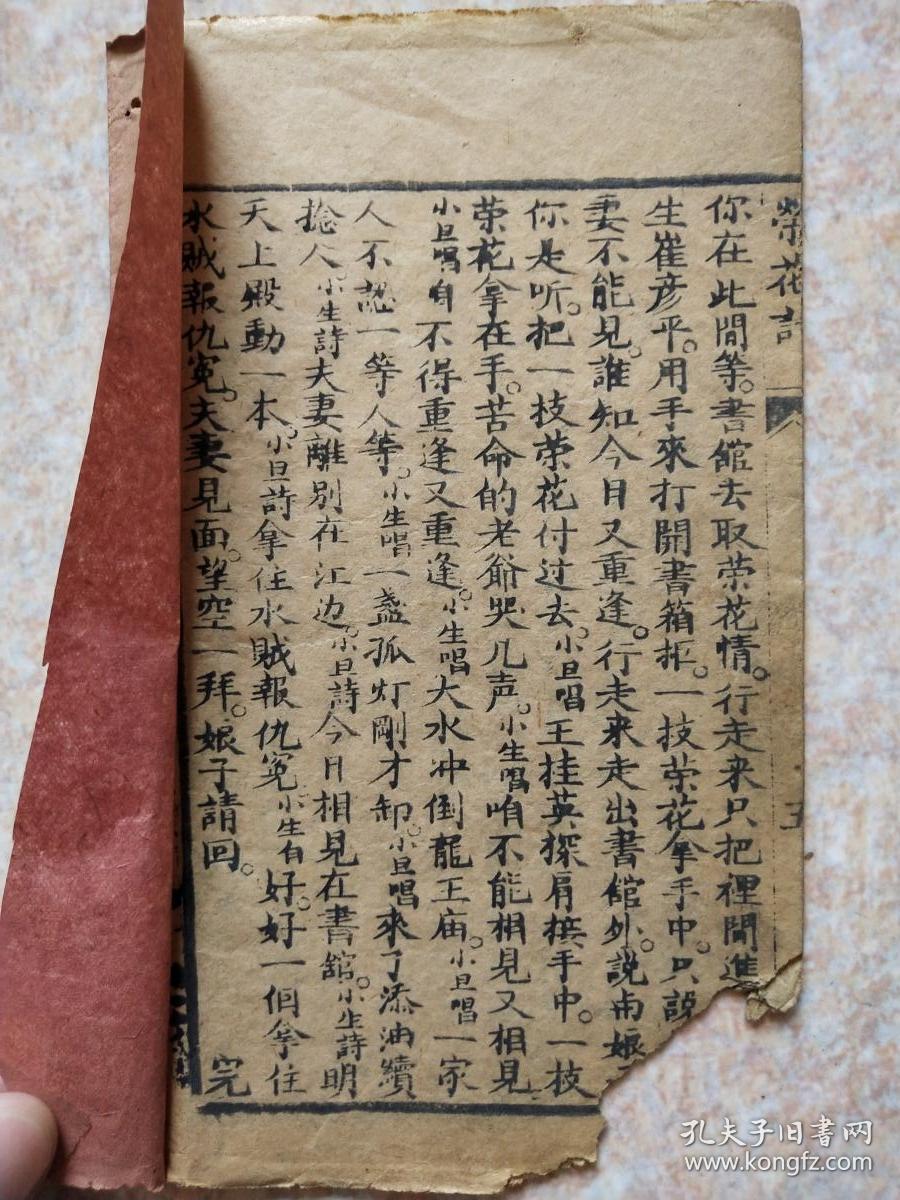 荣花記
五
你在此間等。書舘去取荣花情。行走来只把裡間進
生崔彦平。用手來打開書箱柜。一技荣花拿手中。只説
妻不能見。誰知今日又重逢。行走来走出書舘外。説声娘
你是听。把一技荣花付过去。小旦唱王挂英探肩棋手中。一技
荣花拿在手。苦命的老爺哭几声。小生唱咱不能相見又相見
小旦唱咱不得重逢又重逢。小生唱大水冲倒龍王庙。小旦唱一家
人不認一等人等。小生唱一盏孤灯剛才卸。小旦唱来了添油續
捻人小生詩夫妻離别在江边。小旦詩今日相見在書舘。小生詩明
天上殿動一本。小旦詩拿住水贼報仇冤小生白好。好一個拿住
水贼報仇冤。夫妻見面。望空一拜。娘子請回。 完
孔夫子旧書网
www.kongfz.com